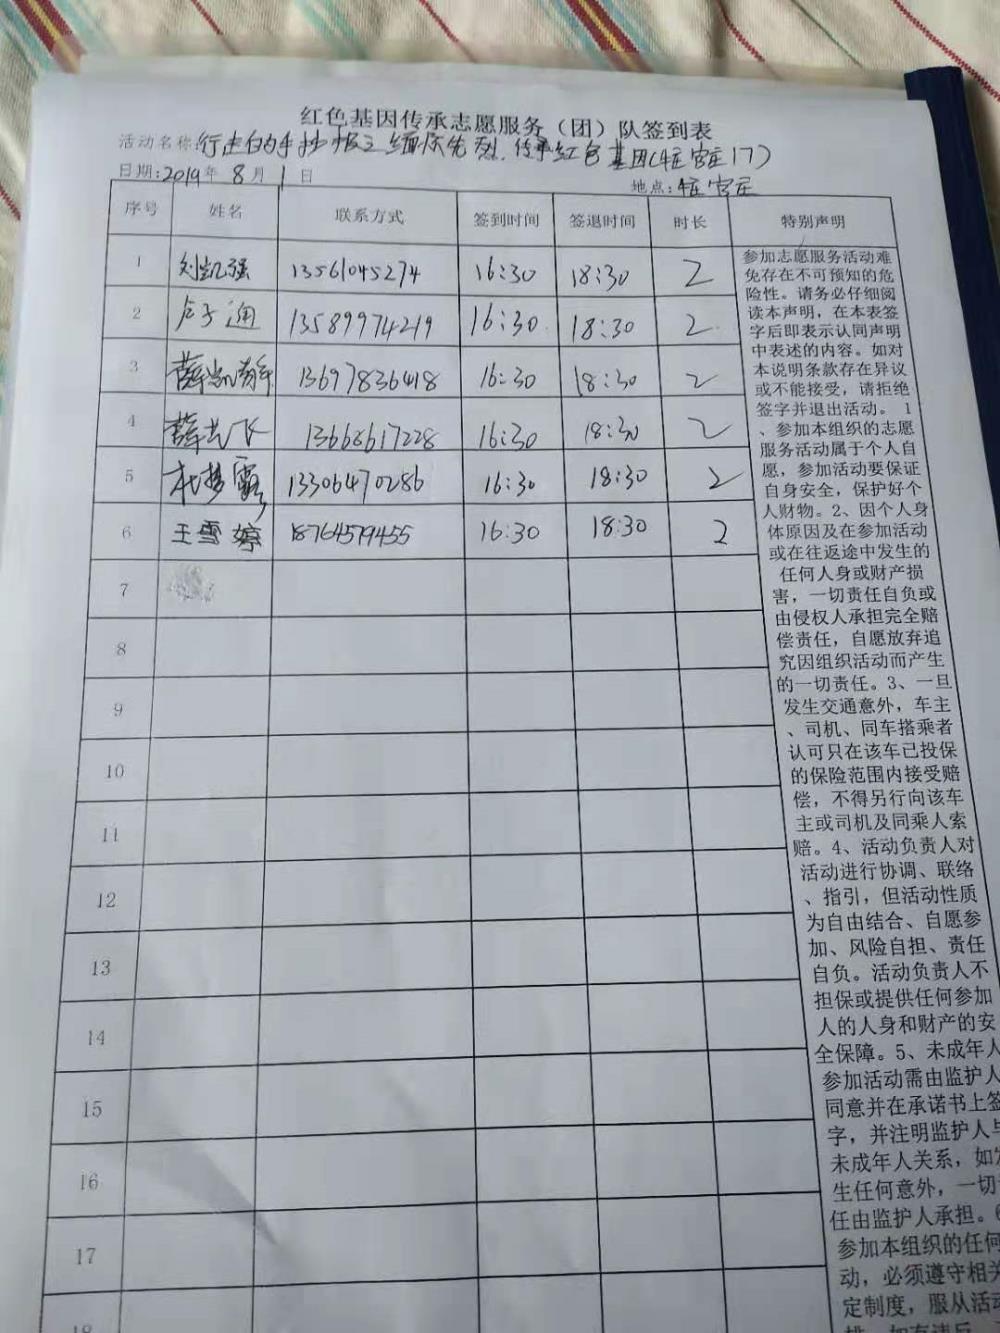 红色基因传承志愿服务（团）队签到表
活动名称:行走的手抄报之缅怀先烈,传承红色基因(牛王官庄17)
日期:2019年8月1日 地点:官庄
序号 姓名 联系方式 签到时间 签退时间 时长 特别声明
1 刘凯强 13561045274 16:30 18:30 2
2 卢子通 13589974219 16:30 18:30 2
3 薛凯 13697836418 16:30 18:30 2
4 薛 飞 13668617228 16:30 18:30 2
5 杜梦露 13306470286 16:30 18:30 2
6 王雪婷 18764579455 16:30 18:30 2
7
8
9
10
11
12
13
14
15
16
17
18
参加志愿服务活动难
免存在不可预知的危
险性。请务必仔细阅
读本声明，在本表签
字后即表示认同声明
中表述的内容。如对
本说明条款存在异议
或不能接受，请拒绝
签字并退出活动。 1
、参加本组织的志愿
服务活动属于个人自
愿，参加活动要保证
自身安全，保护好个
人财物。2、因个人身
体原因及在参加活动
或在往返途中发生的
任何人身或财产损
害，一切责任自负或
由侵权人承担完全赔
偿责任，自愿放弃追
究因组织活动而产生
的一切责任。3、一旦
发生交通意外，车主
、司机、同车搭乘者
认可只在该车已投保
的保险范围内接受赔
偿，不得另行向该车
主或司机及同乘人索
赔。4、活动负责人对
活动进行协调、联络
、指引，但活动性质
为自由结合、自愿参
加、风险自担、责任
自负。活动负责人不
担保或提供任何参加
人的人身和财产的安
全保障。5、未成年人
参加活动需由监护人
同意并在承诺书上签
字，并注明监护人与
未成年人关系，如发
生任何意外，一切
任由监护人承担。6
参加本组织的任何
动，必须遵守相关
定制度，服从活动